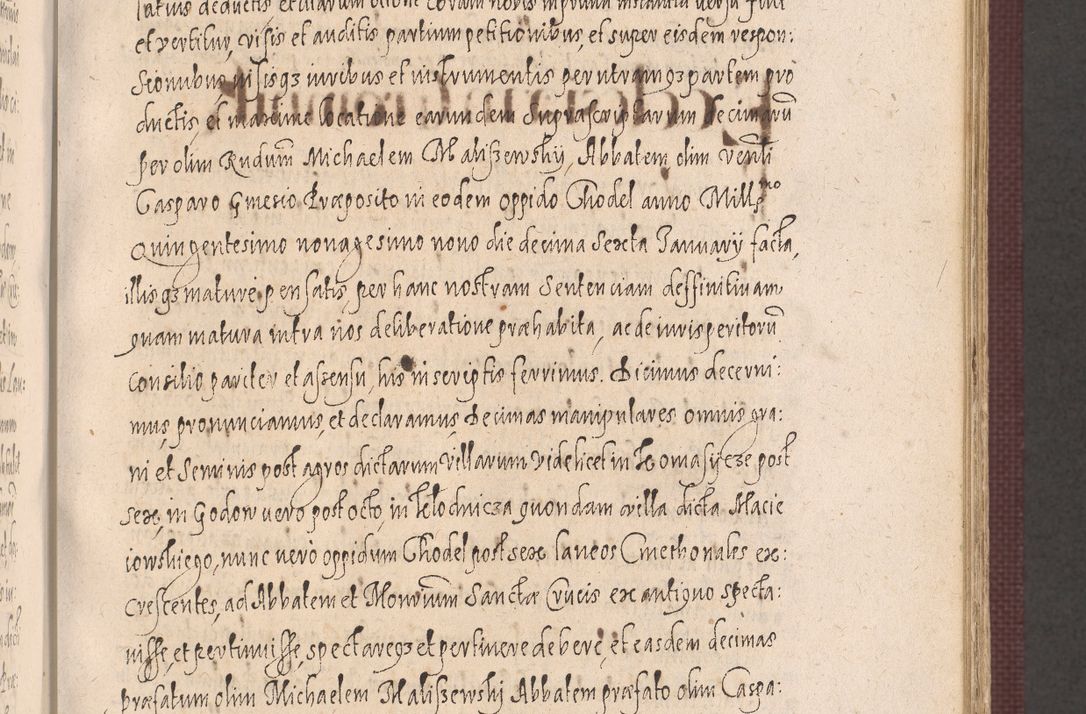 et vertitur, visis et auditis partium petitionibus, et super eisdem respon:
sionibus visisqz iuribus et instrumentis per utramqz partem pro
ductis, et maxime locatione earundem suprascriptarum decimarũ
per olim Rndum Michaelem Maliszewskij, Abbatem olim Venli
Casparo Gmesio Præposito in eodem oppido Chodel anno Mill.mo
Quingentesimo nonagesimo nono die decima sexta Januarij facta,
illisqz mature pensatis, per hanc nostram sententiam deffinitiuam
quam matura intra nos deliberatione præhabita, ac de iurisperitorũ
consilio pariter et assensu, his in scriptis ferrimus. Dicimus decerni:
mus, pronunciamus, et declaramus, Decimas manipulares omnis gra:
ni et seminis post agros dictarum villarum videlicet in Komasijcze post
sex, in Godow vero post octo, in Kłodnicza quondam villa dicta Macie
iowskiego, nunc vero oppidum Chodel post sex laneos Cmethonales ex:
crescentes, ad Abbatem et Monrium Sanctæ Crucis ex antiquo specta:
uisse, et pertinuisse, spectareqz et pertinere debere, et easdem decimas
præfatum olim Michaelem Maliszewskij Abbatem præfato olim Caspa: